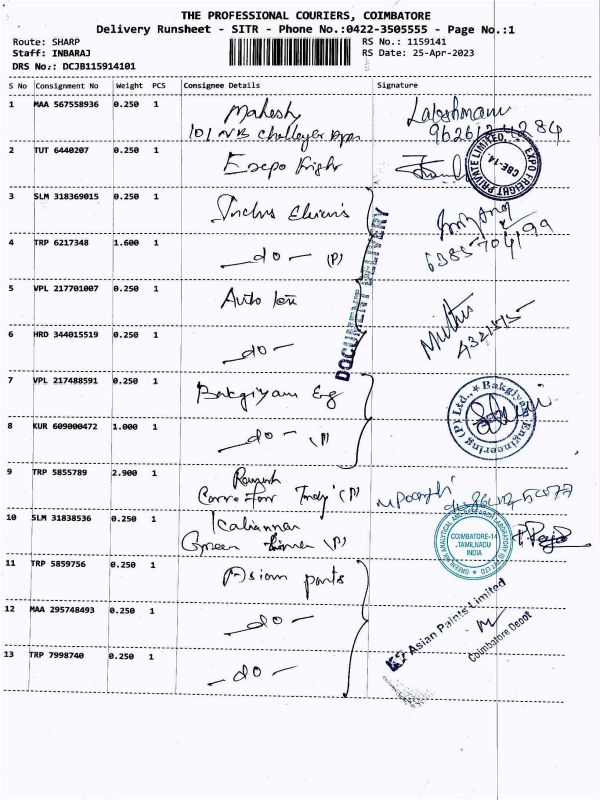 THE PROFESSIONAL COURIERS, COIMBATORE
Delivery Runsheet - SITR - Phone No.:0422-3505555 - Page No.:1
Route: SHARP RS No.: 1159141
Staff: INBARAJ RS Date: 25-Apr-2023
DRS No.: DCJB115914101
S No Consignment No Weight PCS Consignee Details Signature
1 MAA 567558936 0.250 1 Mahesh
101 NB
2 TUT 6440207 0.250 1
EXPO FREIGHT PRIVATE LIMITED. CBE-14.
3 SLM 318369015 0.250 1
4 TRP 6217348 1.600 1 - do - (P) 6385704199
DOCUMENT DELIVERY
5 VPL 217701007 0.250 1 Auto Muthu
6 HRD 344015519 0.250 1 - do -
7 VPL 217488591 0.250 1 Bakgiyam Eng
Bakgiyam Engineering (P) Ltd.,
8 KUR 609000472 1.000 1 - do - (P)
9 TRP 5855789 2.900 1
(P)
10 SLM 31838536 0.250 1
Green (P)
COIMBATORE-14
TAMILNADU
INDIA
11 TRP 5859756 0.250 1 Asian paints
12 MAA 295748493 0.250 1 - do -
Asian Paints Limited
Coimbatore Depot
13 TRP 7998740 0.250 1 - do -